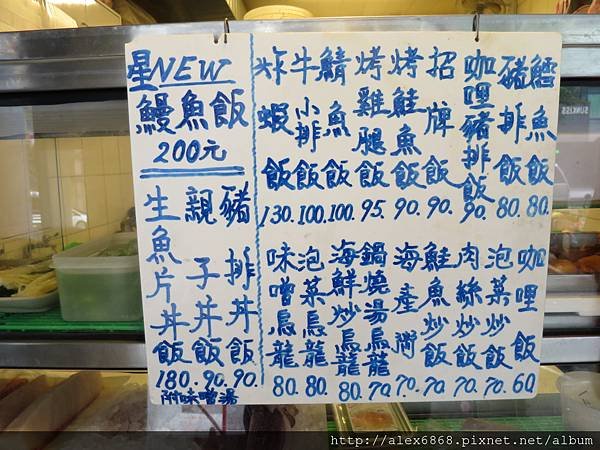 星NEW
鰻魚飯
200元
生魚片丼飯 180.
親子丼飯 90.
豬排丼飯 90.
附味噌湯
炸蝦飯 130.
牛小排飯 100.
鯖魚飯 100.
烤雞腿飯 95.
烤鮭魚飯 90.
招牌飯 90.
咖哩豬排飯 90.
豬排飯 80.
鱈魚飯 80.
味噌烏龍 80.
泡菜烏龍 80.
海鮮炒烏龍 80.
鍋燒湯烏龍 70.
海產粥 70.
鮭魚炒飯 70.
肉絲炒飯 70.
泡菜炒飯 70.
咖哩飯 60
SUNKISS
http://alex6868.pixnet.net/album